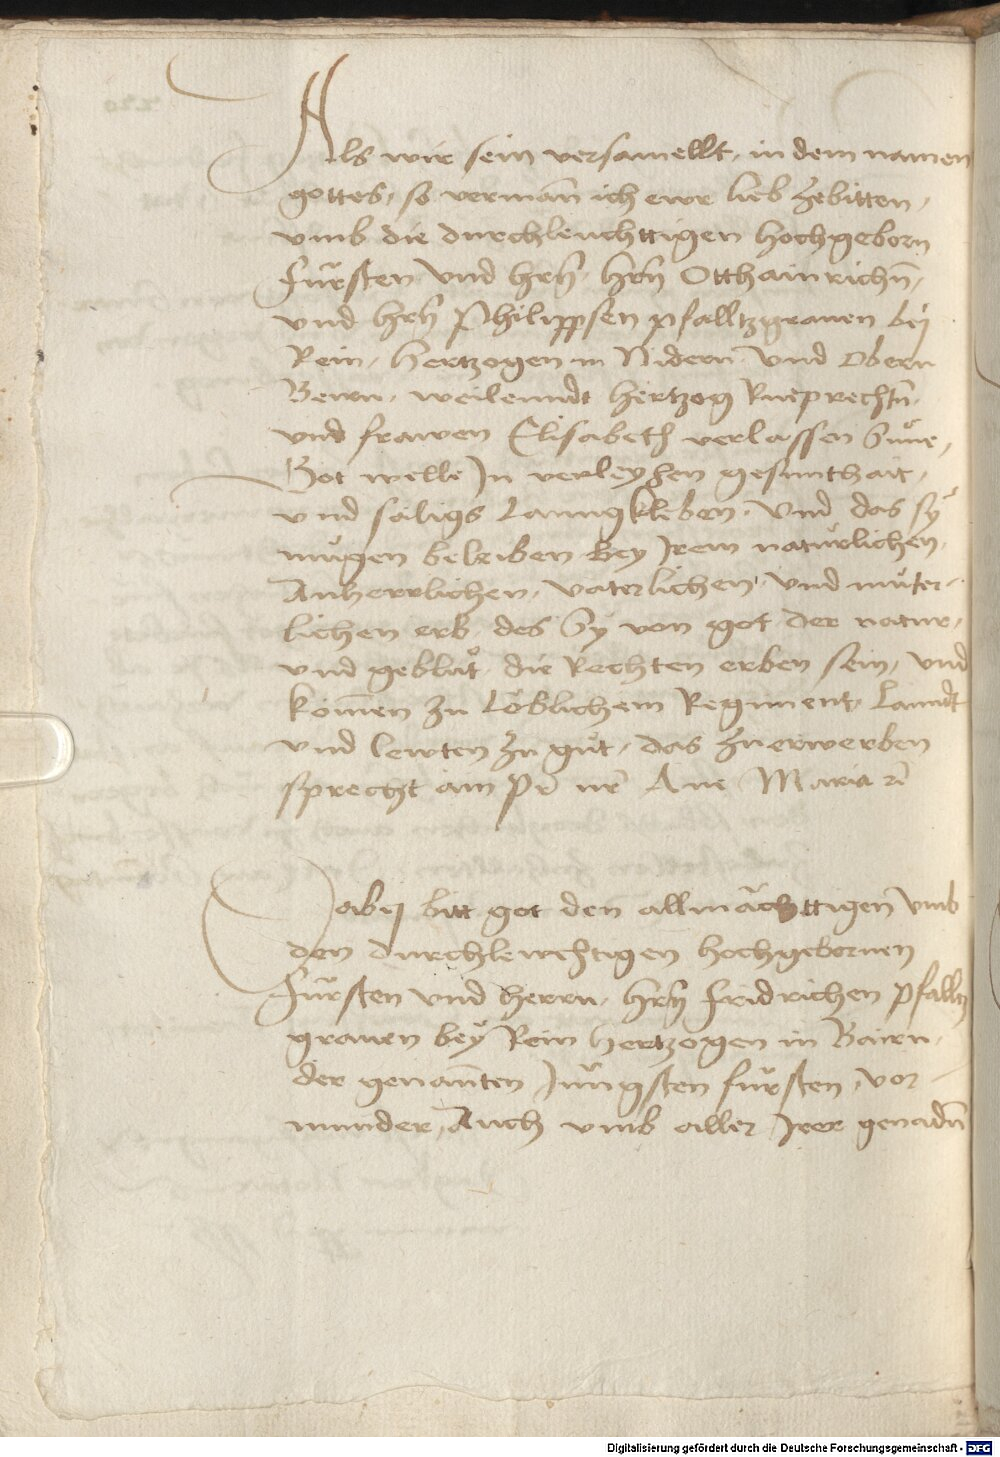 Als wir sein versamellt, in dem namen
gottes, so vermān ich ewr lieb zebitten,
vmb die durchleuchttigen hochgeborn
Fürsten vnd hrn̄, hrn̄ Otthainrichn̄,
vnd hrn̄ Philippsen pfalltzgrauen beÿ
Rein, hertzogen in Nidern vnd Obern
Beirn, weilenndt hertzog Rueprechtn̄,
vnd frawen Elisabeth verlassen Süne,
Got welle In verleyhen gesunthait,
vnd säligs lanngkleben, vnd das sÿ
mügen beleiben bey Irem natürlichen,
Anherrlichen, vaterlichen, vnd müter-
lichen erb, des Sÿ von got der natur,
vnd geblüt, die Rechten erben sein, vnd
komen zu löblichem Regiment, lanndt
vnd lewten zu güt, das zu erwerben
sprecht ain pr̄ nr̄ Aue Maria ꝛc̄
Dabeÿ bitt got den allmächttigen vmb
den durchlewchtigen hochgebornen
Fürsten vnd herrn, hrn̄ fridrichen pfalltz
grauen beÿ Rein hertzogen in Bairn,
der genan̄ten Jüngsten fürsten, vor-
munder, Auch vmb aller Irer genadn̄
Digitalisierung gefördert durch die Deutsche Forschungsgemeinschaft - DFG